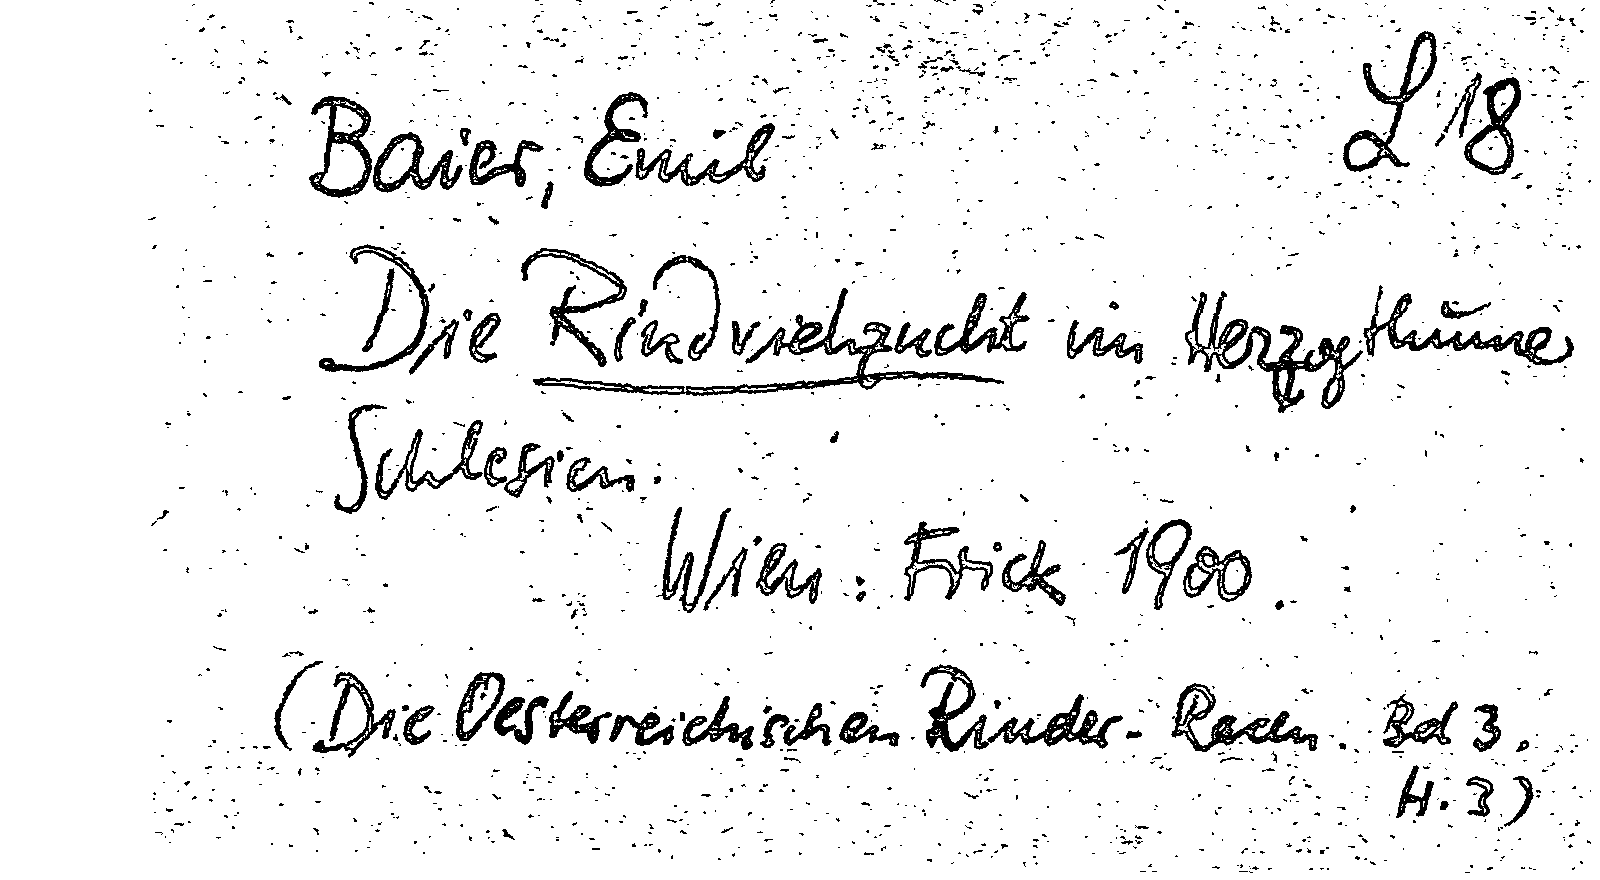 L 18
Baier, Emil
Die Rindviehzucht im Herzogthume
Schlesien.
Wien: Frick 1900.
(Die Oesterreichischen Rinder-Racen. Bd 3.
H. 3)